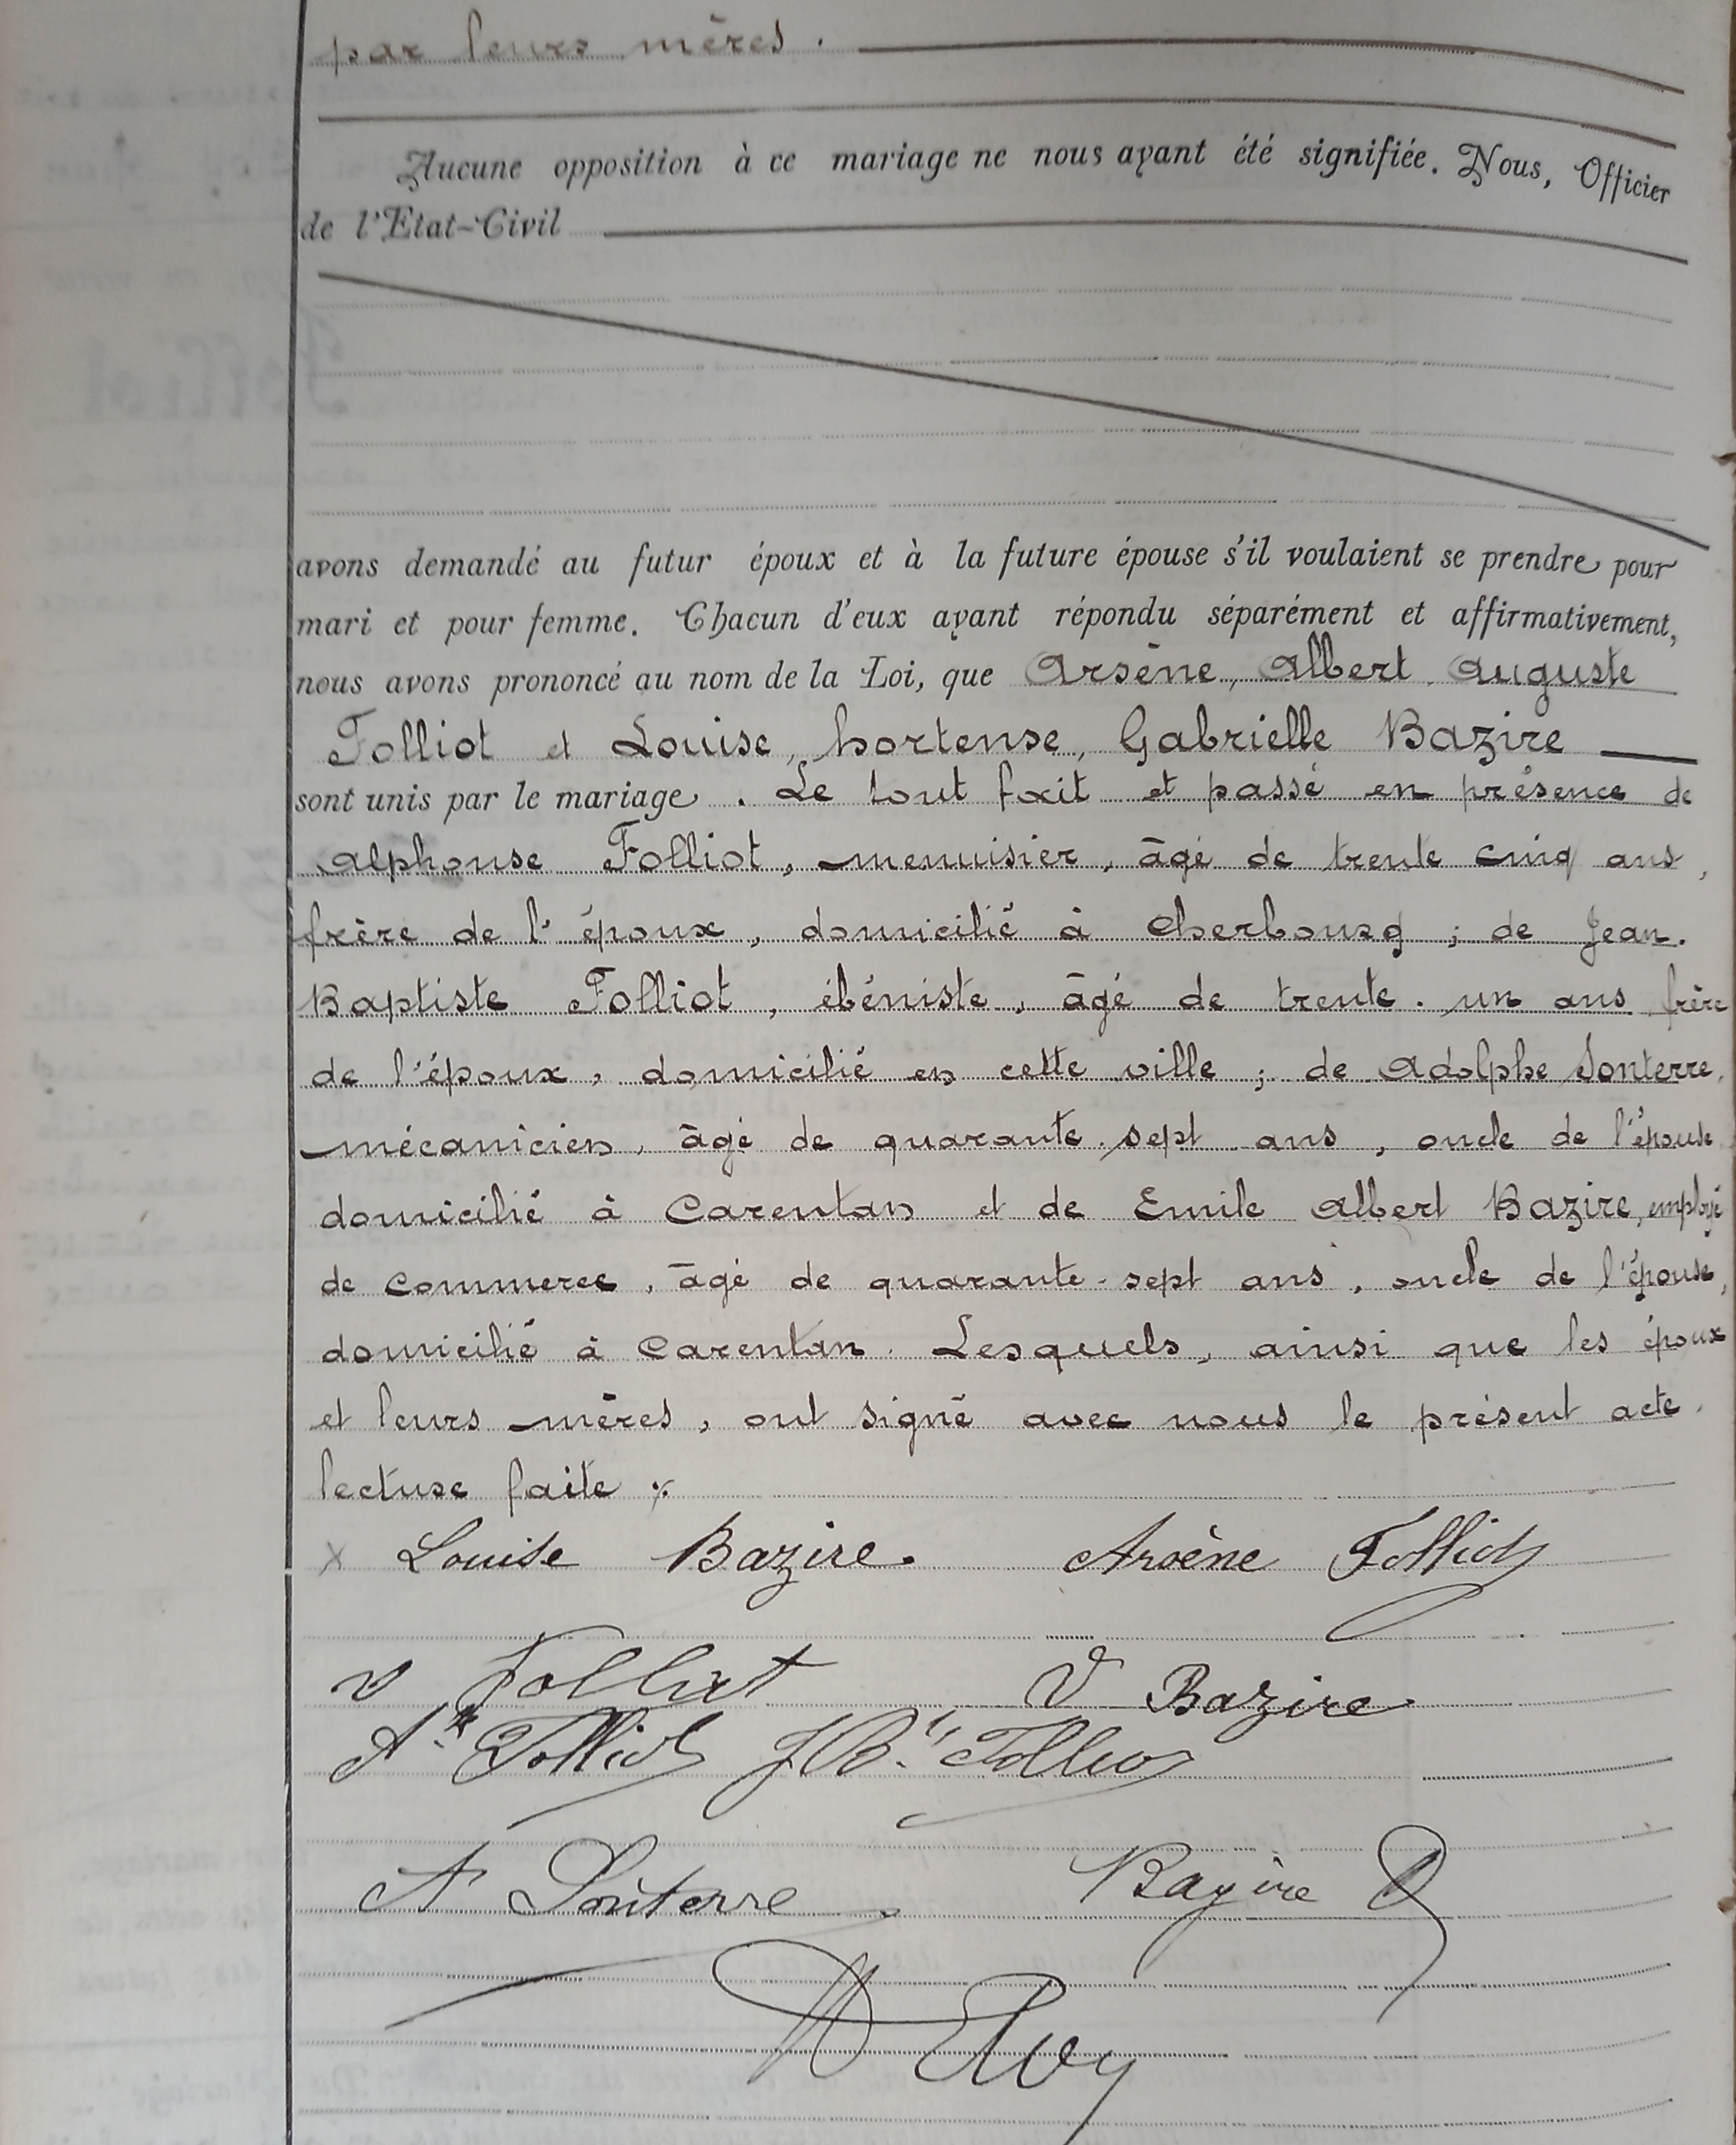 par leurs mères.
Aucune opposition à ce mariage ne nous ayant été signifiée. Nous, Officier
de l'Etat-Civil
avons demandé au futur époux et à la future épouse s'il voulaient se prendre pour
mari et pour femme. Chacun d'eux ayant répondu séparément et affirmativement,
nous avons prononcé au nom de la Loi, que Arsène, Albert, Auguste
Folliot et Louise, hortense, Gabrielle Bazire
sont unis par le mariage. Le tout fait et passé en présence de
Alphonse Folliot, menuisier, âgé de trente cinq ans,
frère de l'époux, domicilié à Cherbourg; de Jean-
Baptiste Folliot, ébéniste, âgé de trente-un ans frère
de l'époux, domicilié en cette ville; de Adolphe Sonterre,
mécanicien, âgé de quarante-sept ans, oncle de l'épouse
domicilié à Carentan et de Emile Albert Bazire, employé
de commerce, âgé de quarante-sept ans, oncle de l'épouse,
domicilié à Carentan. Lesquels, ainsi que les époux
et leurs mères, ont signé avec nous le présent acte,
lecture faite
x Louise Bazire. Arsène Folliot
v Folliot V Bazire
Folliot J Bte Folliot
A Sonterre Bazire